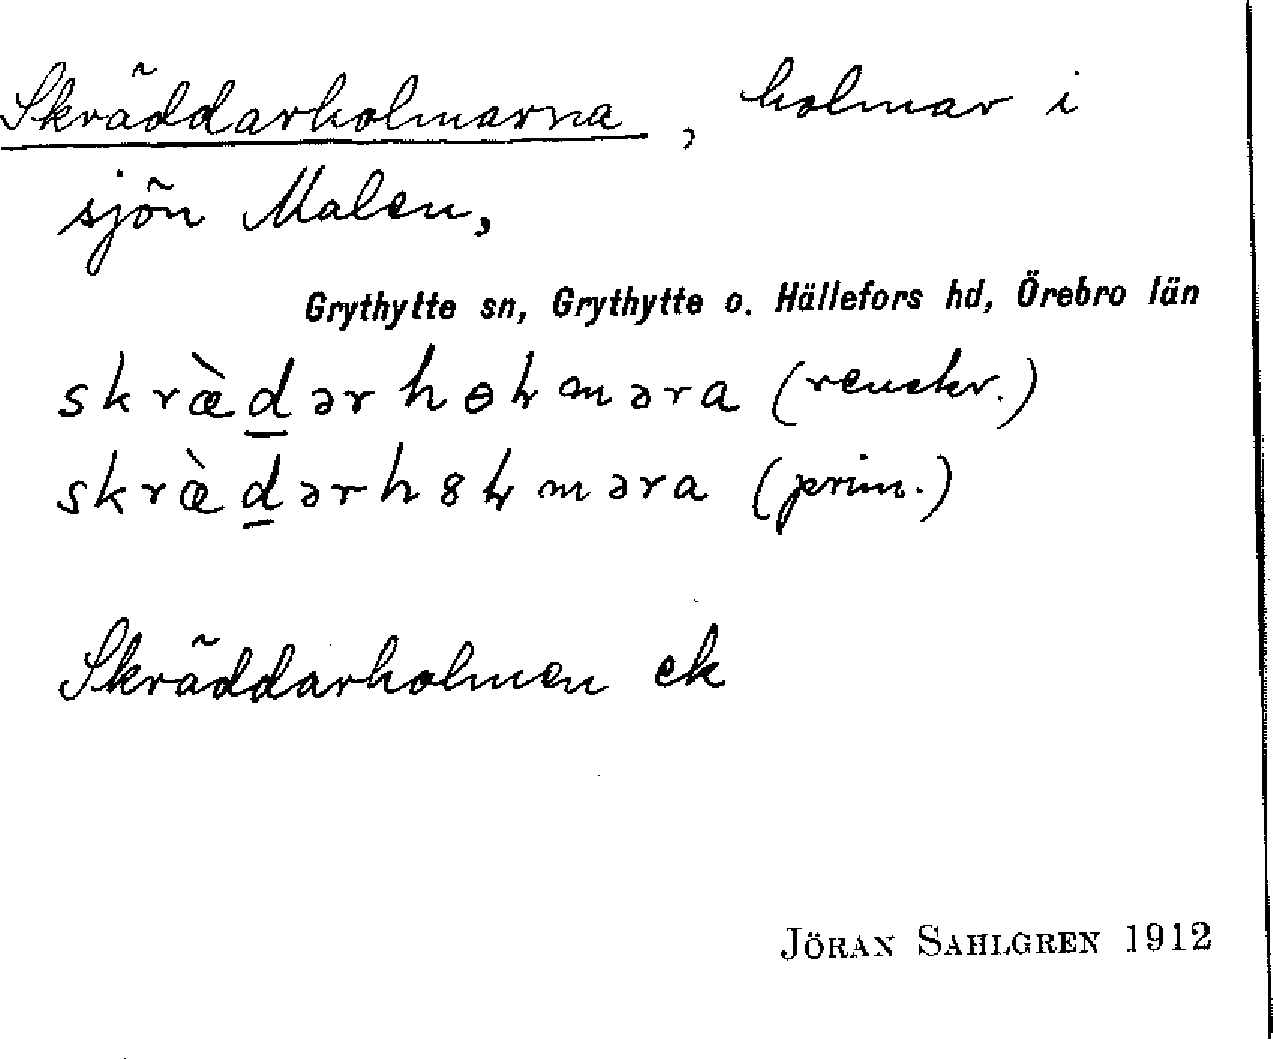 Skräddarholmarna, holmar i
sjön Malen,
Grythytte sn, Grythytte o. Hällefors hd, Örebro län
skræ̀d̲ərhɵɫməra (renskr.)
skræ̀d̲ərh8ɫməra (prim.)
Skräddarholmen ek
JÖRAN SAHLGREN 1912